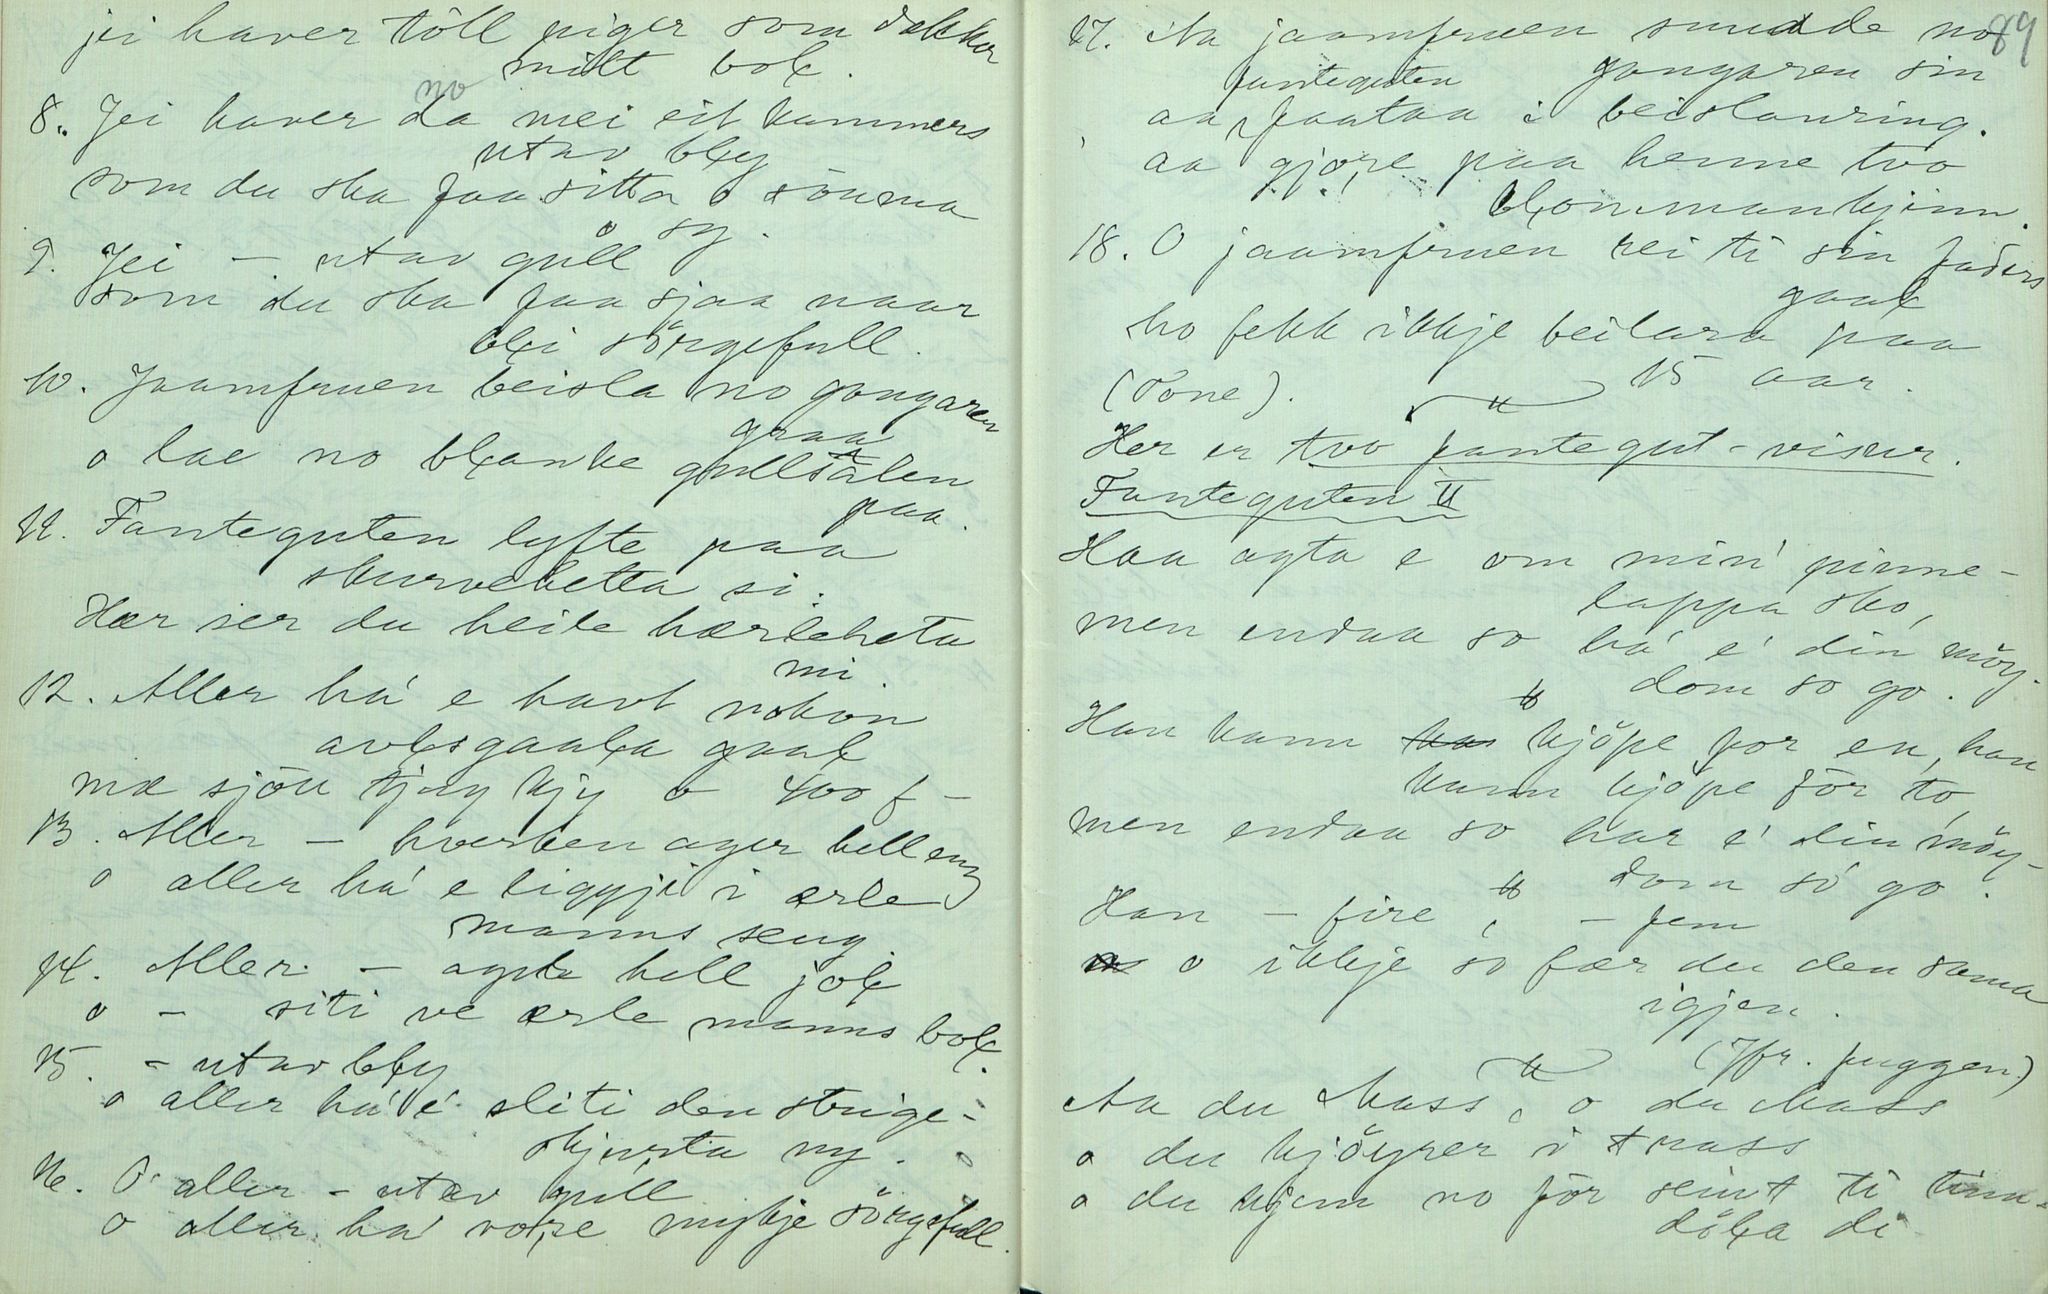 jei haver töll piger som dekker
mitt boł.
8. Jei haver no da mei eit kammers
utav bły
som du ska faa sitta o söuma
o sy.
9. Jei – utav gull
som du ska faa sjaa naar
błi sörgefull.
10. Jaamfruen beisla no gongaren
graa
o lae no błanke gullsalen
paa.
11. Fanteguten lyfte paa
skurvehetta si:
Hær ser du heile hærleheta
mi.
12. Aller há e havt nokon
avłsgaała gaał
mæ sjöu tjug kjy o 400 f –
13. Aller – hverken ager hell eng
o aller há e liggji i ærle
manns seng.
14. Aller – agde hell joł
o – siti ve ærle manns boł.
15. – utav bły
o aller há é sliti den strige-
skjurta ny.
16. O aller – utav gull
o aller há vore mykje sörgefull.
89
17. Aa jaamfruen snudde no
gongaren sin
aa fanteguten faataa i beislauring.
aa gjore paa henne tvo
błommankjinn.
18. O jaamfruen rei ti sin faders
gaał
ho fekk ikkje beilara paa
15 aar.
(Tone).
Her er tvo fantegut-visur.
Fanteguten II
Haa agta e om min' pinne-
lappa sko,
men endaa so há é din möy-
dom so go.
Han kann kjöpe for en, han
kann kjöpe för to,
men endaa so har é din möy-
dom so go.
Han – fire, – fem
o ikkje so fær du den sama
igjen.
(Jfr. puggen)
Aa du Mass, o du Mass
o du kjöyrer i trass
o du kjem no för seint ti tinn-
döła di